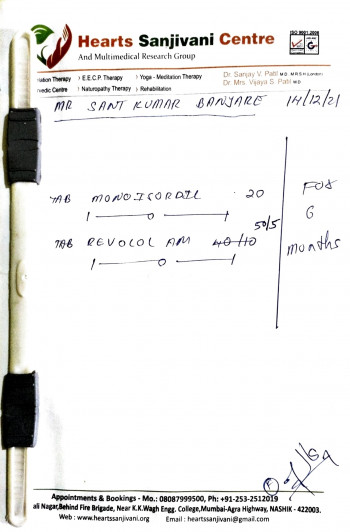 ISO 9001:2008
Hearts Sanjivani Centre
And Multimedical Research Group
Therapy › E.E.C.P. Therapy › Yoga - Meditation Therapy Dr. Sanjay V. Patil M D M R S H (London)
Centre › Naturopathy Therapy › Rehabilitation Dr. Mrs. Vijaya S. Patil M D
MR SANT KUMAR BANJARE 14/12/21
TAB MONOISORDIL 20
1 — 0 — 1
50/5
TAB REVOLOL AM 40/10
1 — 0 — 1
FOR
6
months
Appointments & Bookings - Mo.: 08087999500, Ph: +91-253-2512019
ali Nagar,Behind Fire Brigade, Near K.K.Wagh Engg. College,Mumbai-Agra Highway, NASHIK - 422003.
Web : www.heartssanjivani.org Email : heartssanjivani@gmail.com